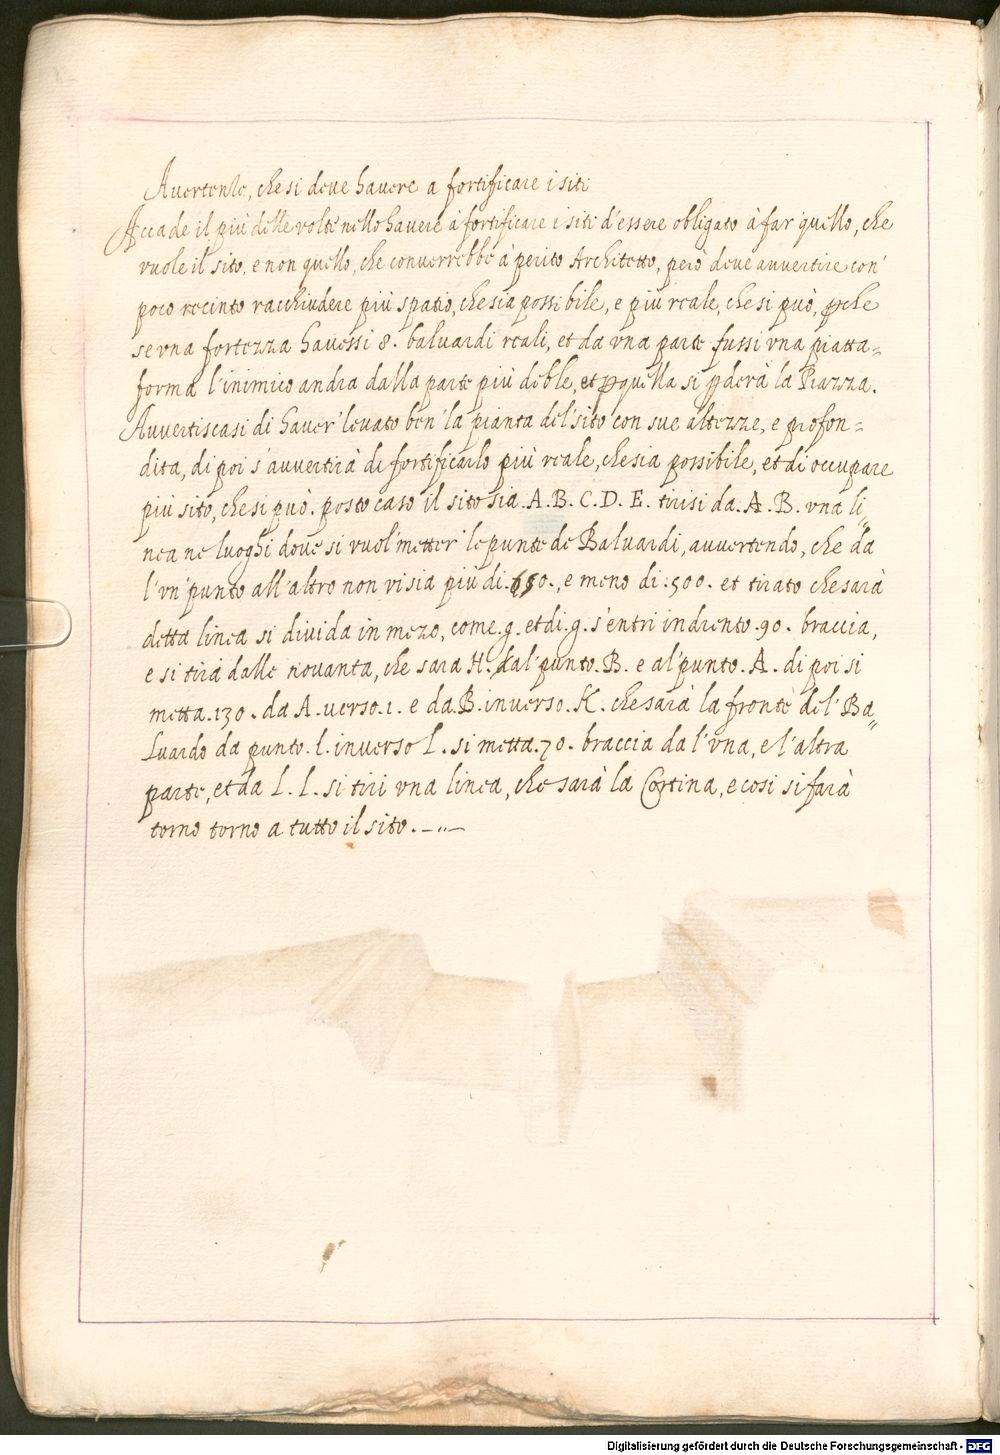 Avertenze, che si deve havere a fortificare i siti
Accade il più delle volte nello havere à fortificare i siti d'essere obligato à far quello, che
vuole il sito, e non quello, che converrebbe à perito Architetto, però deve avvertire con'
poco recinto racchiudere più spatio, che sia possibile, e più reale, che si può, pche
se vna fortezza havessi 8. baluardi reali, et da vna parte fussi vna piatta=
forma l'inimico andra dalla parte più deble, et p quella si pderà la Piazza.
Avvertiscasi di haver' levato ben' la pianta del' sito con sue altezze, e profon=
dita, di poi s'avvertirà di fortificarlo più reale, che sia possibile, et di occupare
più sito, che si può. posto caso il sito sia .A.B.C.D.E. tirisi da .A.B. vna li"
nea ne luoghi dove si vuol' metter' le punte de Baluardi, avvertendo, che da
l'vn' punto all'altro non vi sia più di .650., e meno di .500. et tirato che sarà
detta linea si divida in mezo, come .g. et di .g. s'entri indrento .90. braccia,
e si tirà dalle novanta, che sara H. dal' punto .B. e al' punto .A. di poi si
metta .130. da A. verso .1. e da .B. inverso .K. che sarà la fronte del' Ba"
luardo da punto .l. inverso l. si metta .70. braccia da l'vna, e l'altra
parte, et da l. l. si tiri vna linea, che sarà la Cortina, e così si farà
torno torno a tutto il sito. _.._
Digitalisierung gefördert durch die Deutsche Forschungsgemeinschaft - DFG